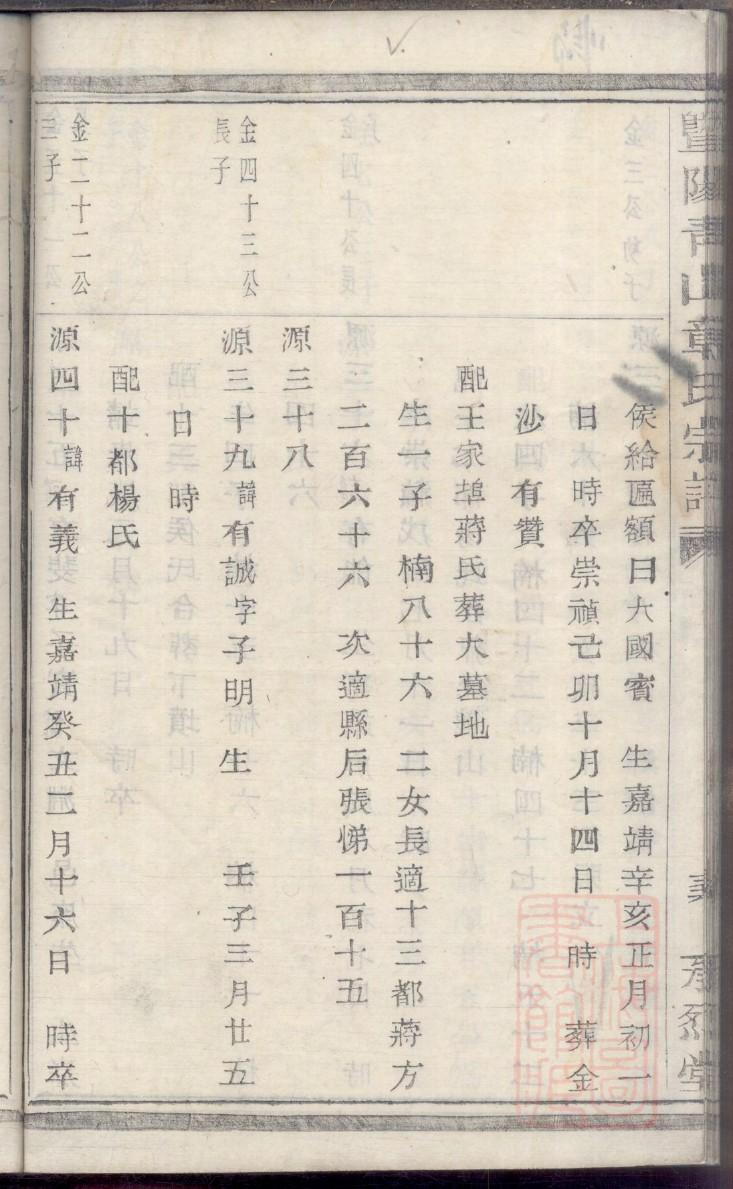 暨陽青山章氏宗譜
侯給匾額曰大國賓　生嘉靖辛亥正月初一
日　時卒崇禎己卯十月十四日　時　葬金
沙　有贊
配王家埠蔣氏葬大墓地
生一子　楠八十六　二女長適十三都蔣方
二百六十六　次適縣后張悌一百十五
源三十八
金四十三公
長子
源三十九諱有誠字子明　生　　壬子三月廿五
日　時
配十都楊氏
金二十二公
三子
源四十諱有義　生嘉靖癸丑二月十六日　時卒